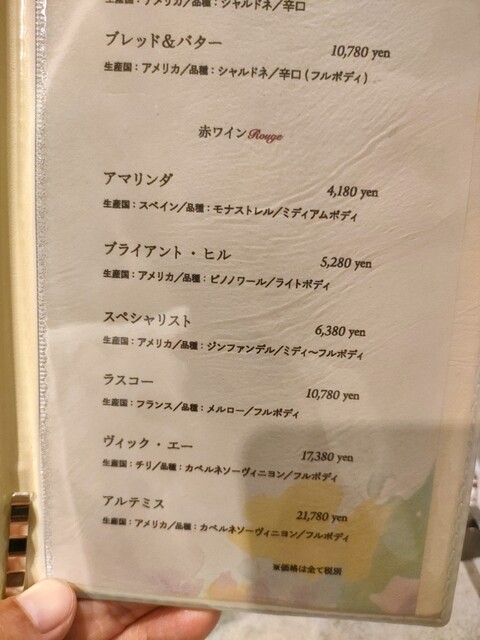 生産国：アメリカ／品種：シャルドネ／辛口
ブレッド＆バター 10,780 yen
生産国：アメリカ／品種：シャルドネ／辛口（フルボディ）
赤ワイン Rouge
アマリンダ 4,180 yen
生産国：スペイン／品種：モナストレル／ミディアムボディ
ブライアント・ヒル 5,280 yen
生産国：アメリカ／品種：ピノノワール／ライトボディ
スペシャリスト 6,380 yen
生産国：アメリカ／品種：ジンファンデル／ミディ〜フルボディ
ラスコー 10,780 yen
生産国：フランス／品種：メルロー／フルボディ
ヴィック・エー 17,380 yen
生産国：チリ／品種：カベルネソーヴィニヨン／フルボディ
アルテミス 21,780 yen
生産国：アメリカ／品種：カベルネソーヴィニヨン／フルボディ
※価格は全て税別